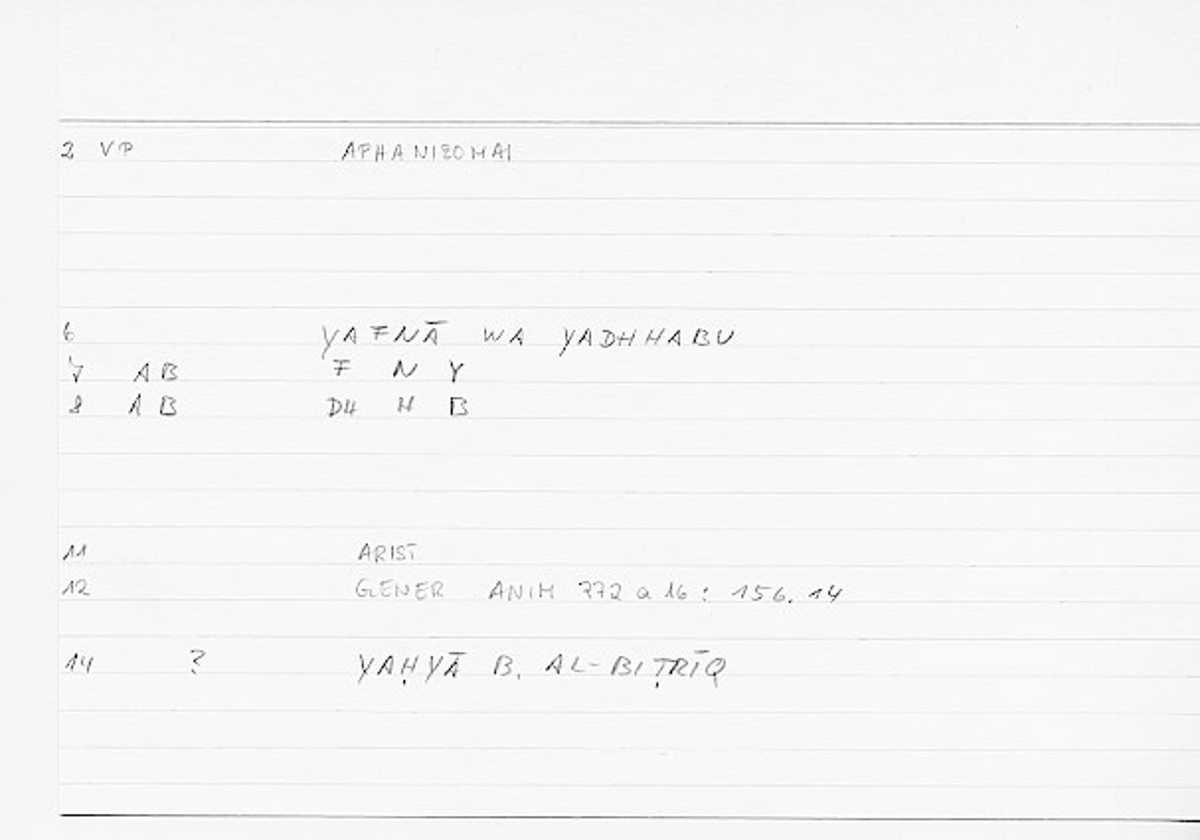 2 VP APHANIZOMAI
6 YAFNĀ WA YADHHABU
7 AB F N Y
8 AB DH H B
11 ARIST
12 GENER ANIM 772 a 16 : 156. 14
14 ? YAḤYĀ B. AL-BIṬRĪQ